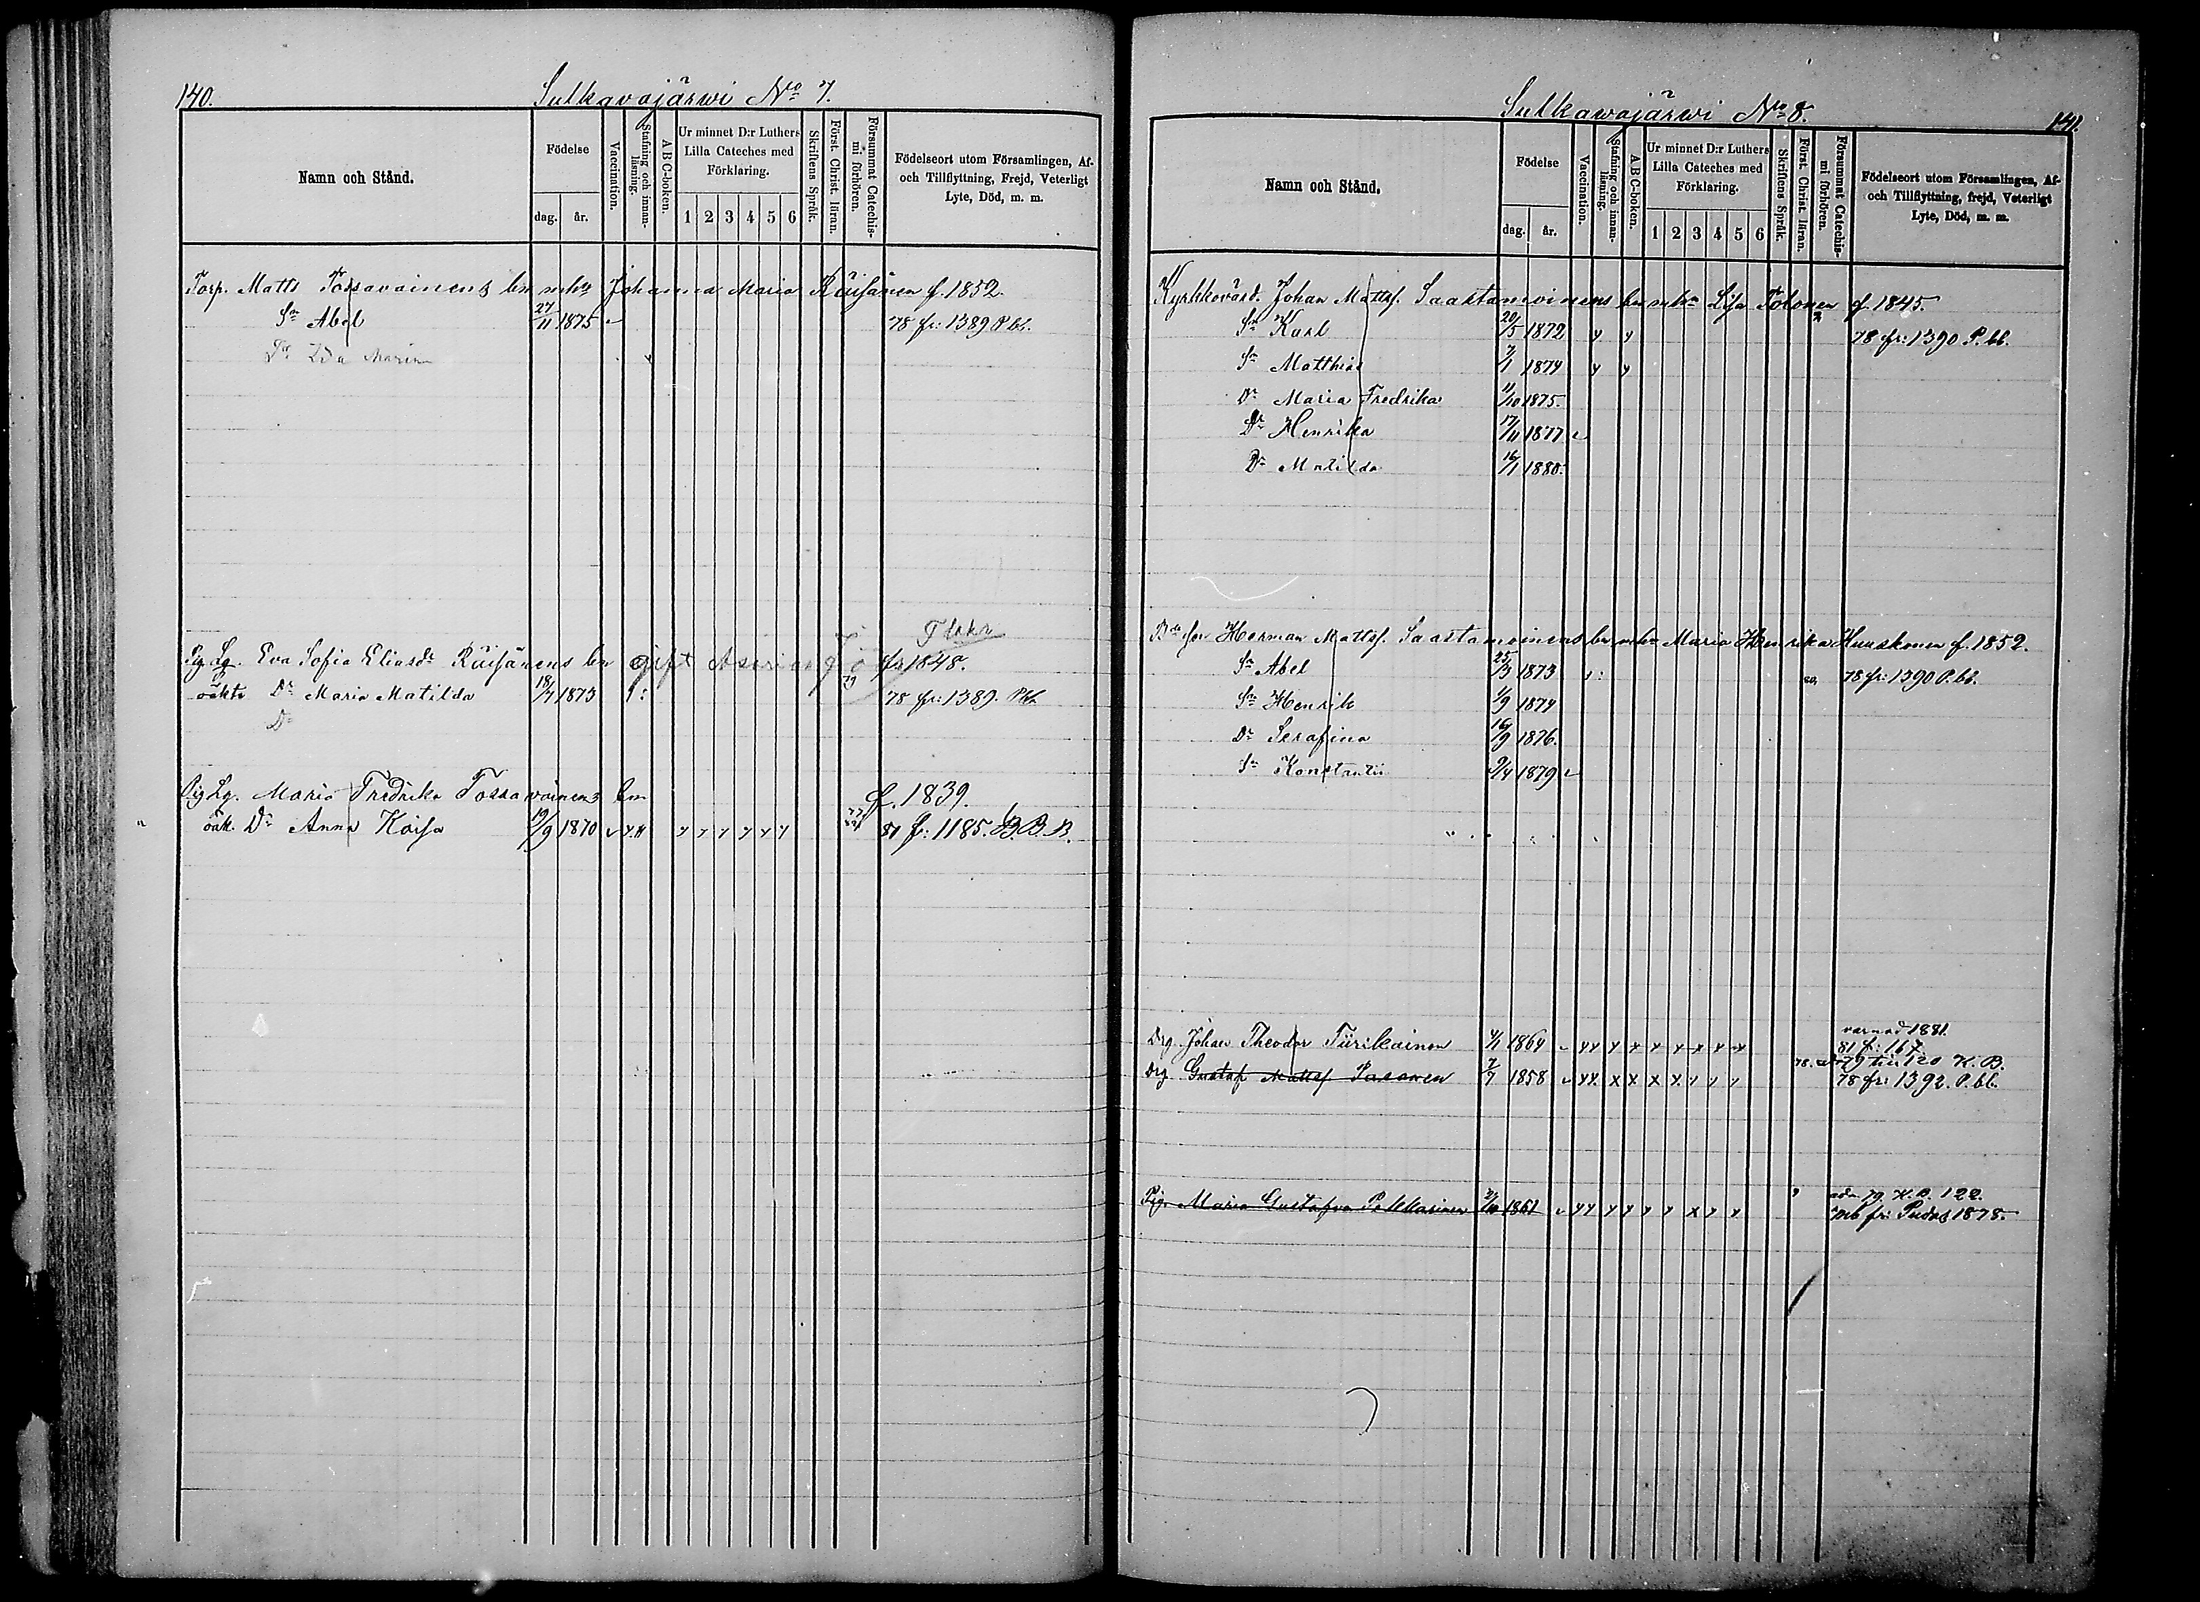 140.
Sulkavajärwi No 7.
Namn och Stånd.
Födelse
dag. år.
Vaccination.
Stafning och innanläsning.
A B C-boken.
Ur minnet D:r Luthers Lilla Cateches med Förklaring.
1 2 3 4 5 6
Skriftens Språk.
Först. Christ. läran.
Försummat Catechismi förhören.
Födelseort utom Församlingen, Af- och Tillflyttning, Frejd, Veterligt Lyte, Död, m. m.
Torp. Matts Tossavainens bn m hu Johanna Maria Räisänen f. 1852.
Sn Abel 27/11 1875 78 fr: 1389 P.bl.
Dr Ida Maria
Pig Lg. Eva Sofia Eliasdr Räisänens bn gift f. 1848.
oäkta Dr Maria Matilda 18/7 1873 79 78 fr: 1389. Pbl.
Dr
Pig Lg. Maria Fredrika Tossavainens bn f. 1839.
oäk. Dr Anna Kaisa 19/9 1870 81 fr: 1185. B.B.
Sulkawajärwi No 8.
141.
Namn och Stånd.
Födelse
dag. år.
Vaccination.
Stafning och innanläsning.
A B C-boken.
Ur minnet D:r Luthers Lilla Cateches med Förklaring.
1 2 3 4 5 6
Skriftens Språk.
Först. Christ. läran.
Försummat Catechismi förhören.
Födelseort utom Församlingen, Af- och Tillflyttning, frejd, Veterligt Lyte, Död, m. m.
Kyrkkovärd. Johan Mattsf. Saastamoinens bn m hu Lisa Tolonen f. 1845.
Sn Karl 20/5 1872 y y 78 fr: 1390 P.bl.
Sn Matthias 7/1 1874 y y
Dr Maria Fredrika 11/10 1875.
Dr Henrika 17/11 1877
Dr Matilda 16/1 1880.
Herman Mattsf. Saastamoinens bn m hu Maria Henrika Kuuskonen f. 1852.
Sn Abel 25/3 1873 80. 78 fr: 1390 P.bl.
Sn Henrik 1/9 1874
Dr Serafina 16/9 1876.
Sn Konstantin 9/4 1879
varnad 1881.
Drg. Johan Theodor Tiirikainen 4/1 1864 81 f: 167.
79 till 120 K.B.
Drg Gustaf Mattsf Pasanen 7/7 1858 78 fr: 1392. P.bl.
79. K.B. 122.
Pig. Maria Gustafva Pekkarinen 1861 mb fr: Pudas 1878.